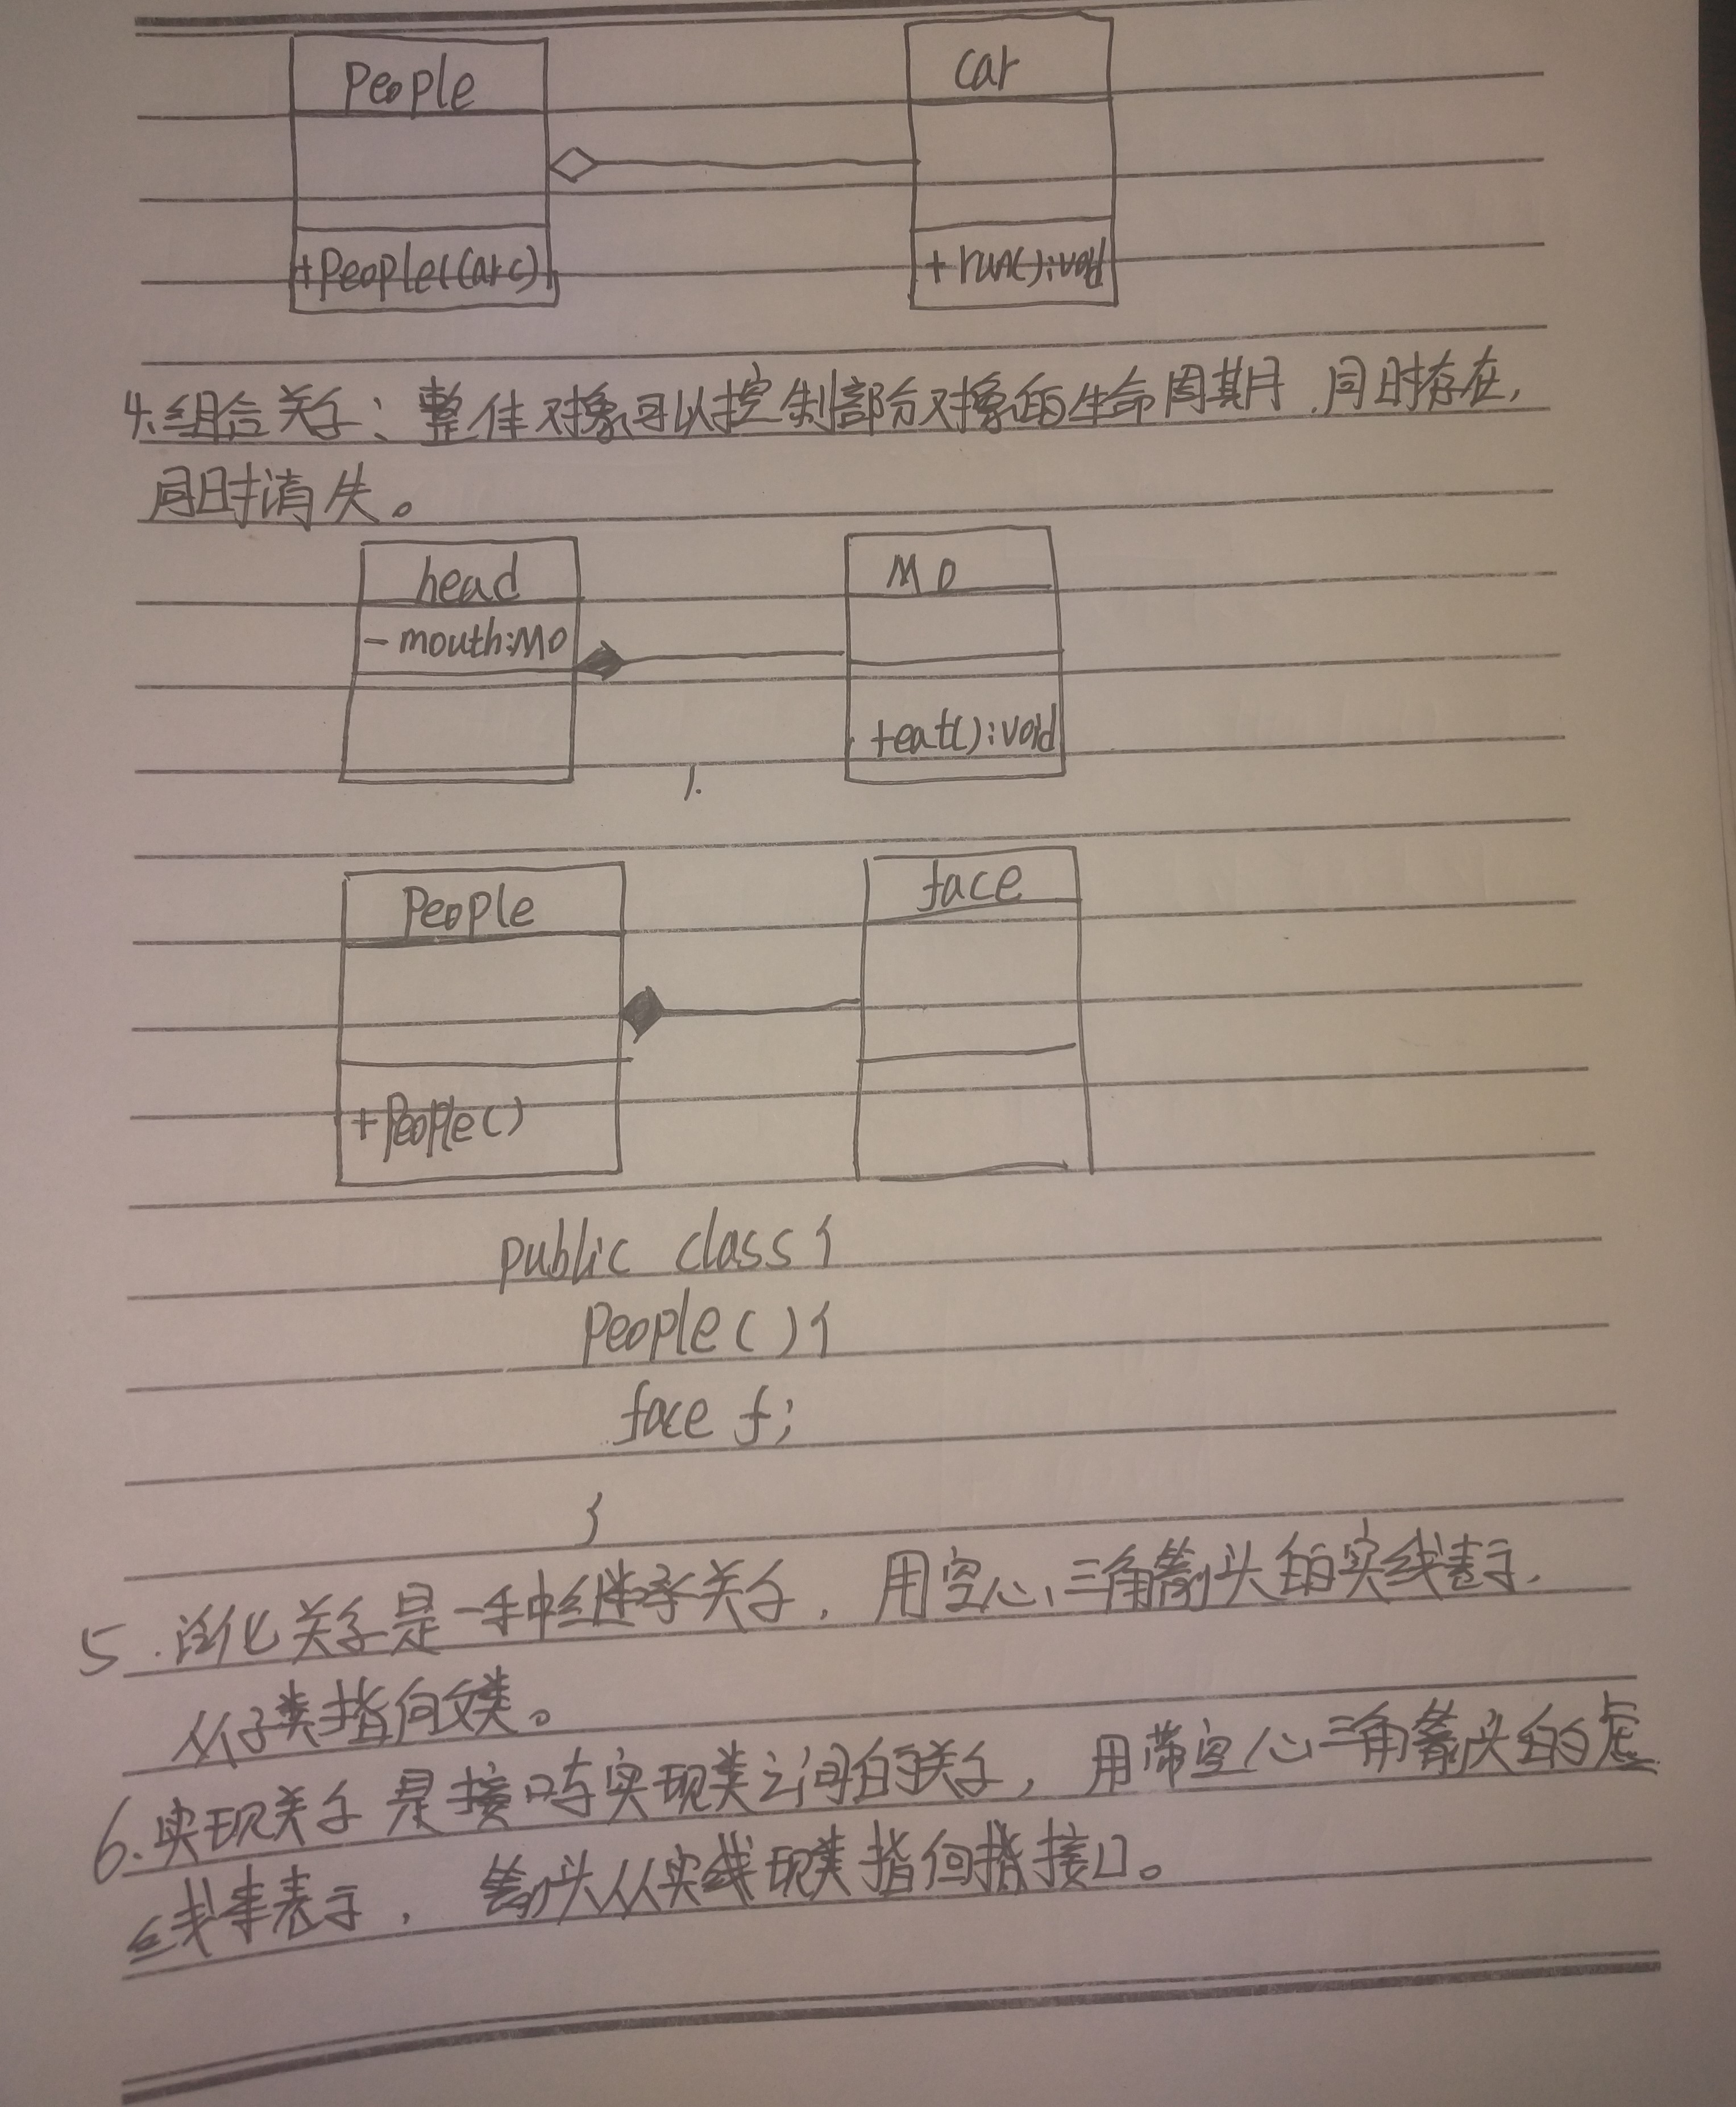 People
car
+People(Car c)
+run():void
4.组合关系：整体对象可以控制部分对象的生命周期.同时存在,
同时消失。
head
MO
-mouth:MO
+eat():void
1.
People
face
+People()
public class {
People(){
face f;
}
5.泛化关系是一种继承关系,用空心三角箭头的实线表示.
从子类指向父类。
6.实现关系是接口与实现类之间的关系,用带空心三角箭头的虚
线来表示,箭头从实线现类指向指接口。